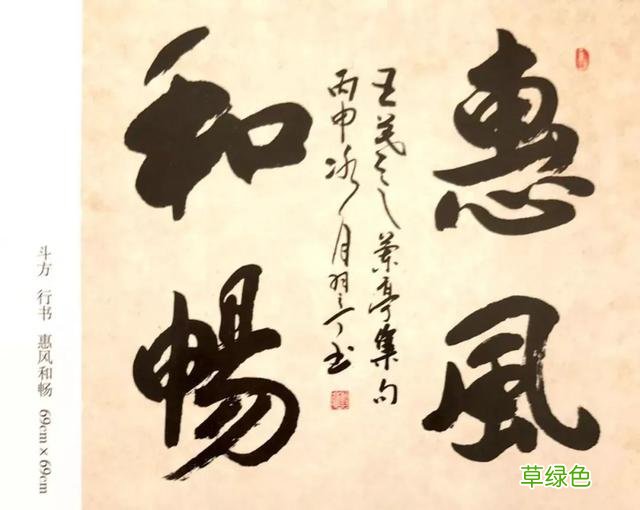 惠風
和暢
王羲之兰亭集句
丙申冰月
斗方 行书 惠风和畅 69cm×69cm
草绿色